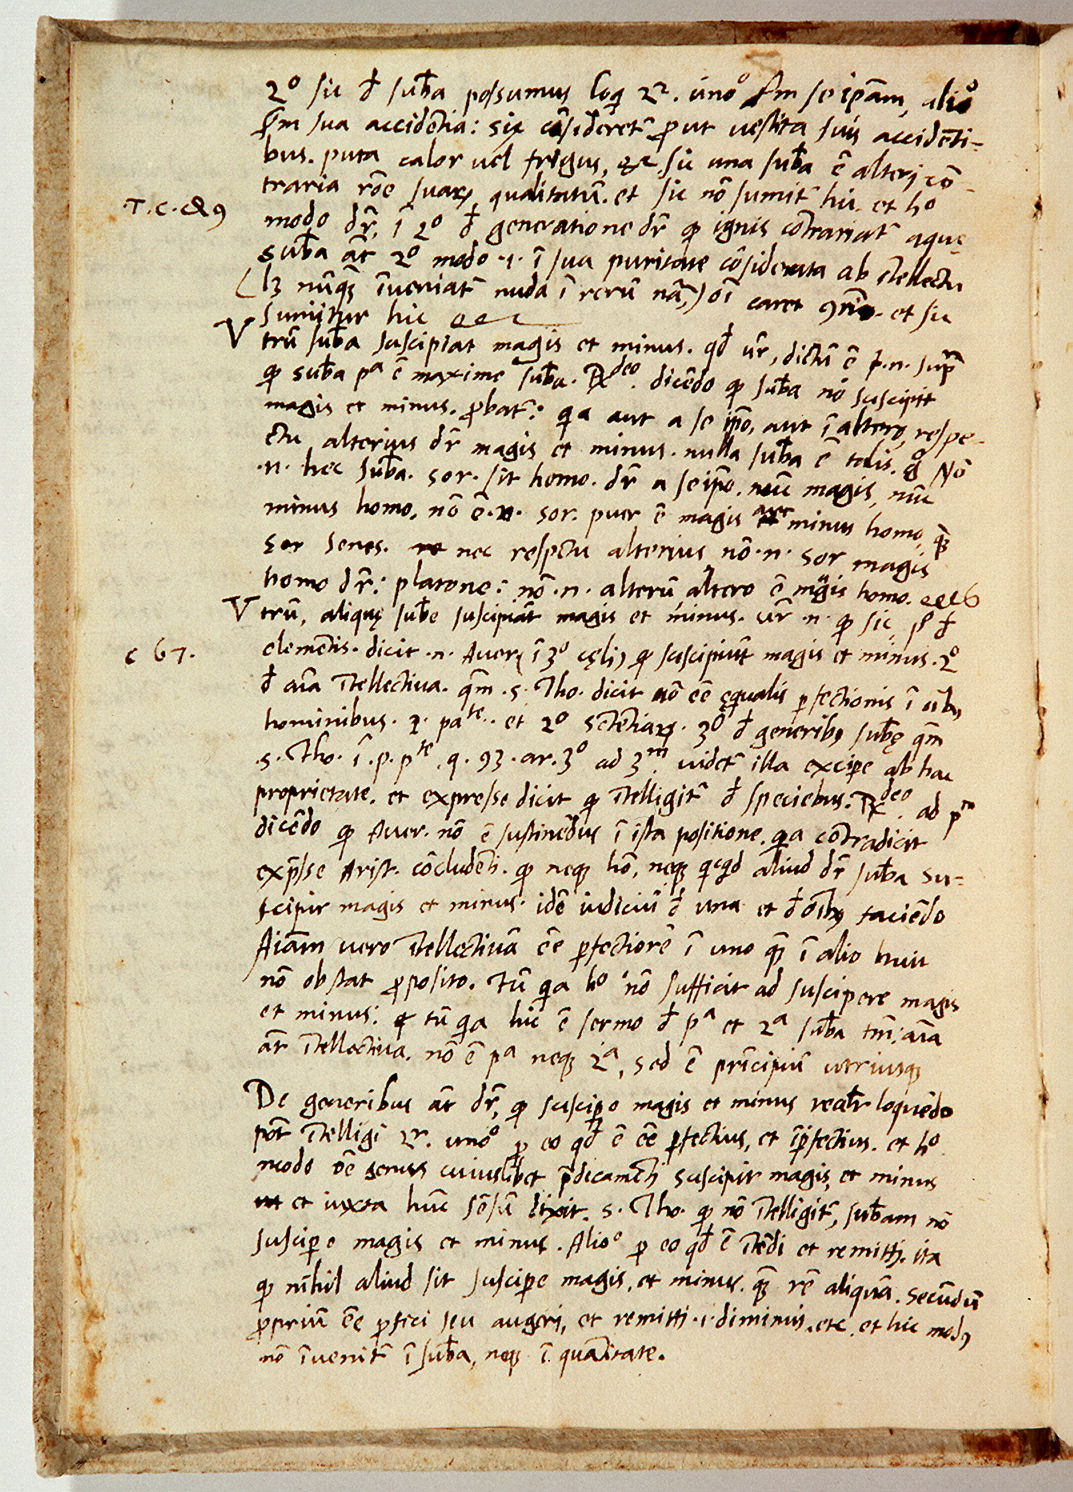 2º sic đ suba possumus loq̃ 2r. unoº sm̃ se ipãm, alioº
sm̃ sua accidentia: sic cõsideretr̃ prout vestita suis accidenti-
bus. puta calor vel frigus, et sic una suba ẽ alteri cõ-
traria rõe suarꝝ qualitatũ. et sic nõ sumitr̃ hic. et hº
T. c.
modo dr̃, ĩ 2º đ generatione dr̃ ꝙ ignis cõtrariatr̃ aque
suba aũt 2º modo .i. ĩ sua puritate cõsiderata ab ĩtellectu
(lꝫ nũq̃ ĩveniatr̃ nuda ĩ rerũ nã,) oĩ caret et sic
sumitur hic
Vtrũ suba suscipiat magis et minus. qđ vr̃, dictũ ẽ .n. supra
ꝙ suba pª ẽ maxime suba. Rdeo. dicẽdo ꝙ suba nõ suscipit
magis et minus. probatr̃: qia aut a se ipº, aut ĩ altero, respe-
ctu alterius dr̃ magis et minus. nulla suba ẽ talis. g̊ Nõ
.n. hec suba. sor. sit homo. dr̃ a seipº. nũc magis, nũc
minus homo, nõ ẽ .n. sor. puer ẽ magis aut minus homo, q̃
sor senes. nec respctu alterius nõ .n. sor magis
homo dr̃: platone: nõ .n. alterũ altero ẽ magis homo.
Vtrũ, aliquę sube suscipiãt magis et minus. vr̃ .n. ꝙ sic pº đ
c 67.
elemẽtis. dicit .n. Aver, (ĩ 3º cęli) ꝙ suscipiũt magis et minus. 2º
đ aĩa ĩtellectiva. qm̃ .s. Tho. dicit nõ eẽ ęqualis pfectionis ĩ oĩbꝰ
hominibus. pᵃ. pate. et 2º sctẽtiarꝝ. 3º đ generibꝰ subę qm̃
.s. Tho. ĩ .p. pte. q. 93. ar. 3º ad 3m videtr̃ illa excipe ab hac
proprietate. et expresse dicit ꝙ ĩtelligitr̃ đ speciebus. Rdeo. ad pm
dicẽdo ꝙ Aver. nõ ẽ sustinẽdus ĩ ista positione. qia cõtradicit
exp̃sse Arist. cõcludẽti. ꝙ neqꝫ hõ, neqꝫ qcqd aliud dr̃ suba su-
scipit magis et minus. idẽ iudiciũ đ una et đ oĩbꝰ faciẽdo
Aĩam vero ĩtellectivã eẽ pfectiorẽ ĩ uno q̃ ĩ alio huic
nõ obstat proposito. Tũ qia hº nõ sufficit ad suscipere magis
et minus: tũ qia hic ẽ sermo đ pª et 2ª suba tm̃: aĩa
aũt ĩtellectiva. nõ ẽ pª neqꝫ 2ª, sed ẽ principiũ utriusqꝫ
De generibus aũt dr̃, ꝙ suscipe magis et minus realr̃ loquẽdo
pot̃ ĩtelligi 2r. unoº p eo qđ ẽ eẽ pfectius, et ĩpfectius. et hº
modo oẽ genus cuiuslibet p̃dicamẽti suscipit magis, et minus
et iuxta hũc sẽsũ dixit. s. Tho. ꝙ nõ ĩtelligitr̃, subam nõ
suscipe magis et minus. Alioº p eo qđ ẽ ĩtẽdi et remitti. ita
ꝙ nihil aliud sit suscipe magis, et minus. q̃ rẽ aliquã. secũdũ
propriũ eẽ pfici seu augeri, et remitti .i. diminui. etc. et hic modꝰ
nõ ĩvenitr̃ ĩ suba, neqꝫ ĩ quãtitate.